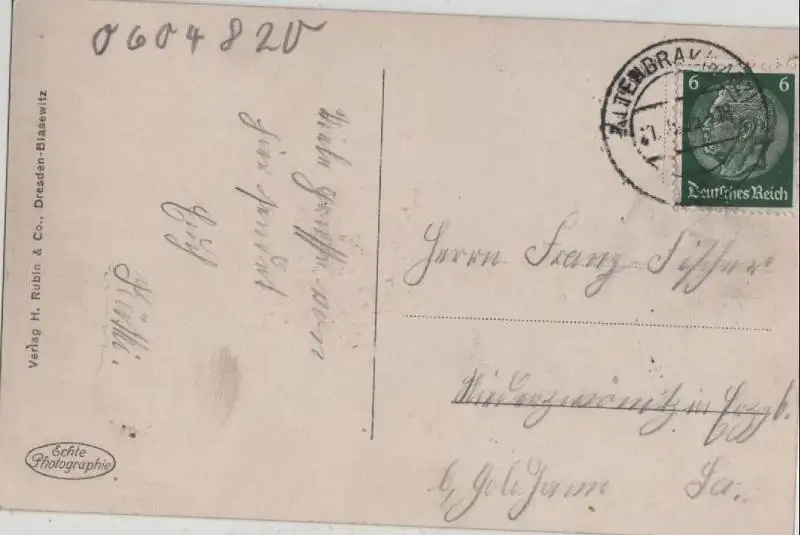 0604820
Verlag H. Rubin & Co., Dresden-Blasewitz
Echte
Photographie
Liebe Grüße von
hier sendet
Euch
ALTENBRAK
6 6
Deutsches Reich
Herrn Franz Fischer
Niederzwönitz im Erzgb.
b,
Sa.